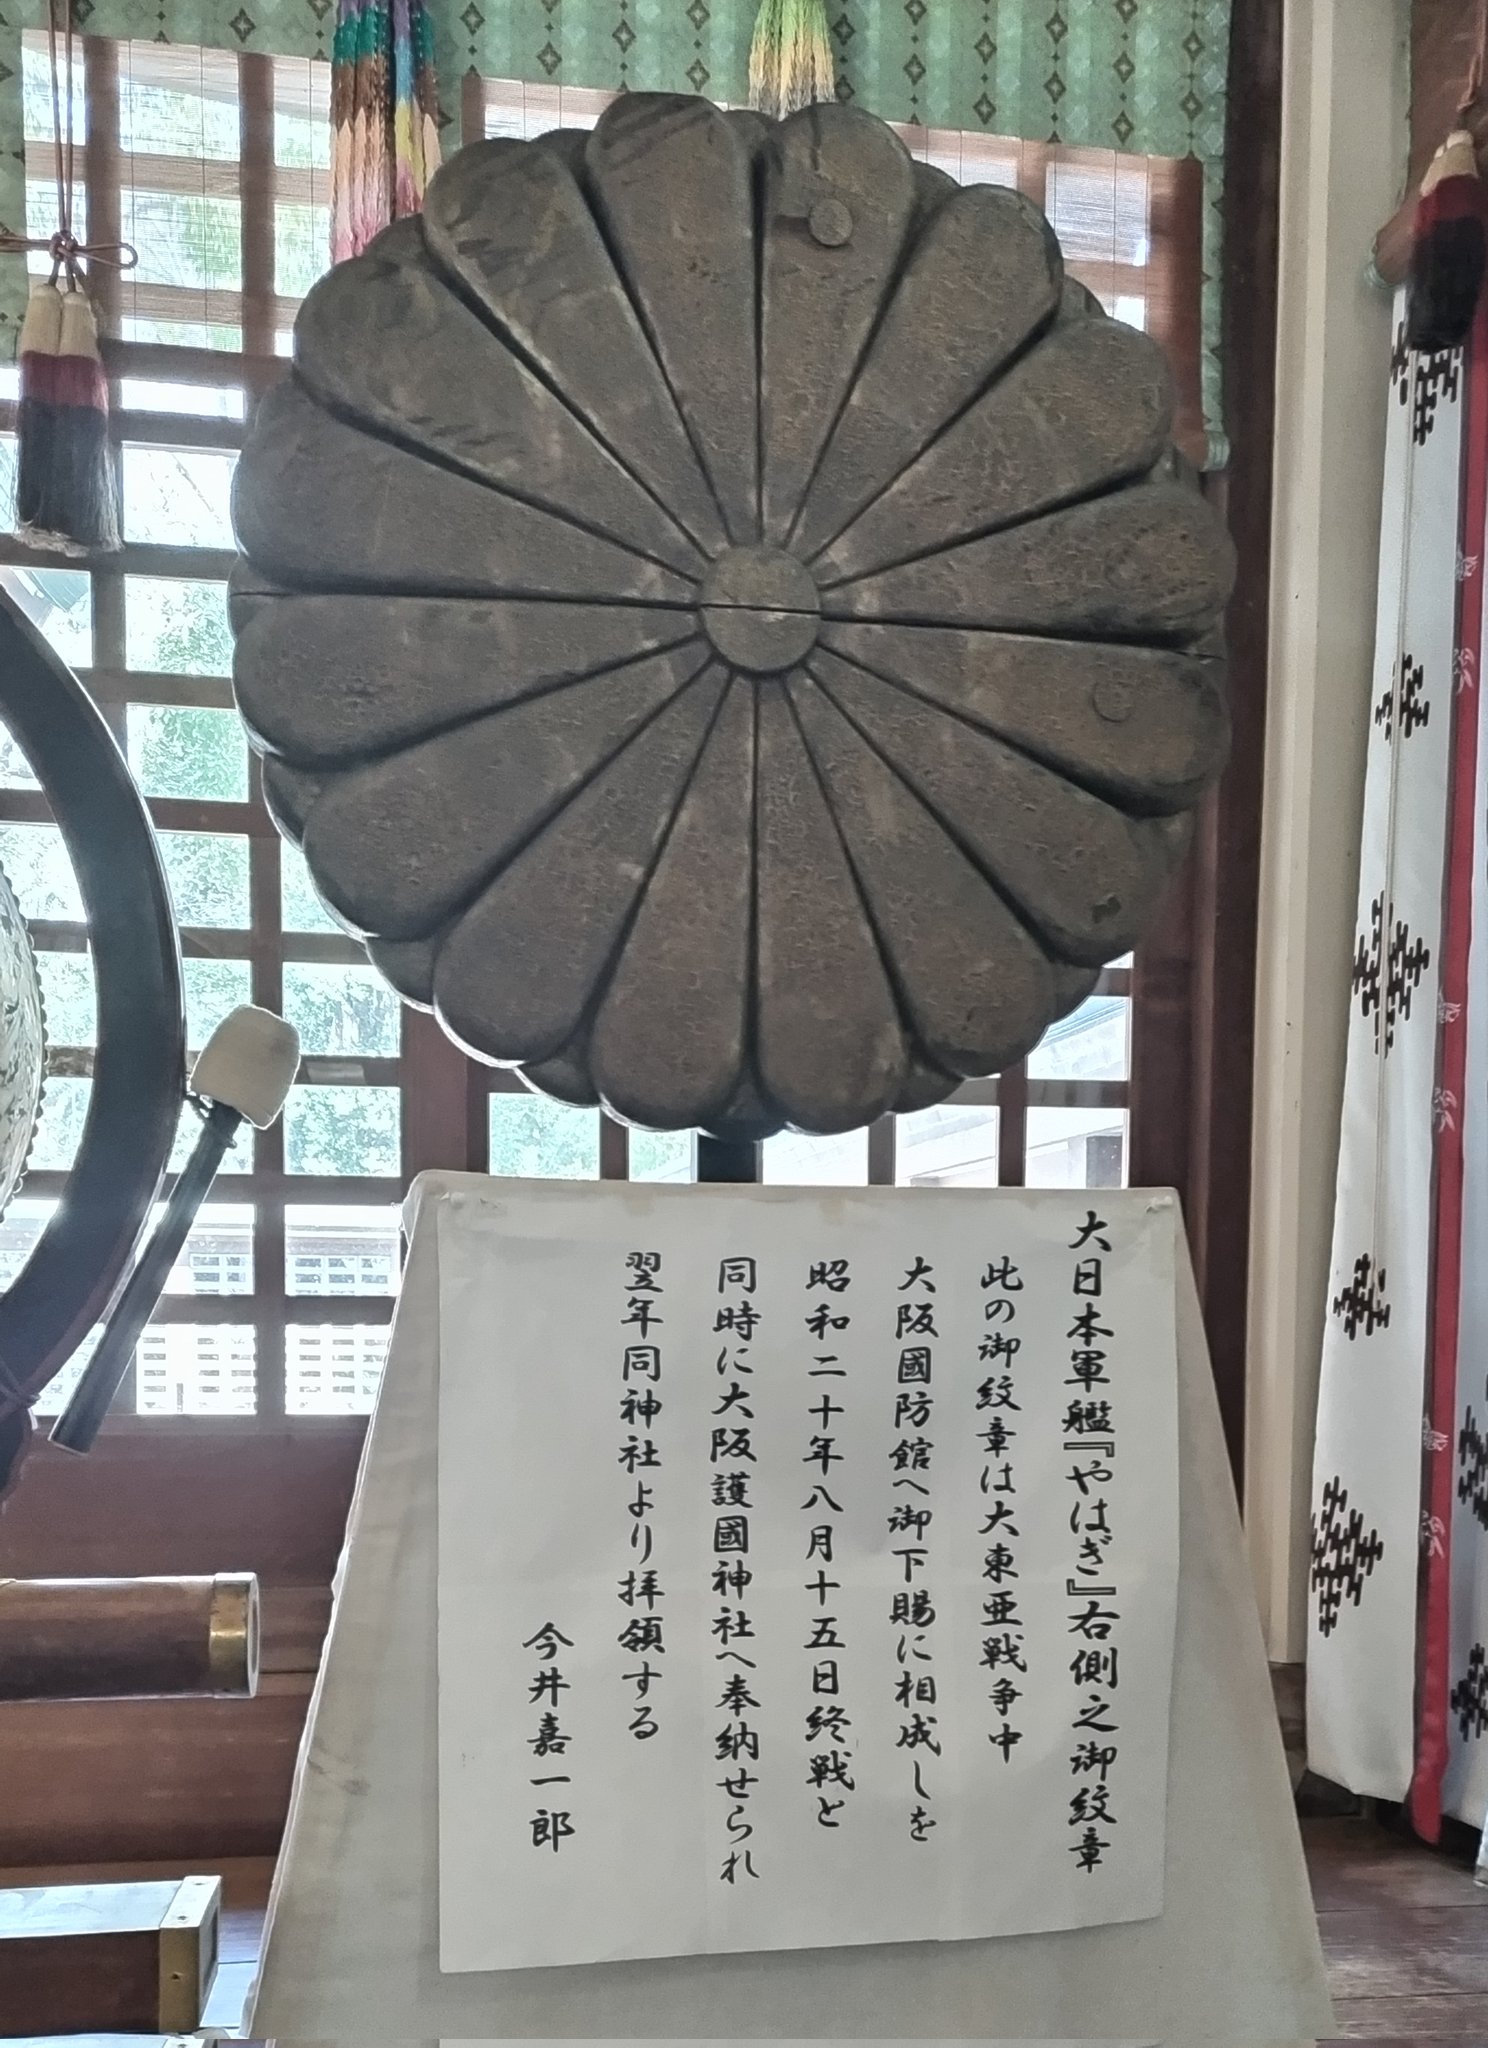 大日本軍艦『やはぎ』右側之御紋章
此の御紋章は大東亜戦争中
大阪國防館へ御下賜に相成しを
昭和二十年八月十五日終戦と
同時に大阪護國神社へ奉納せられ
翌年同神社より拝領する
今井嘉一郎